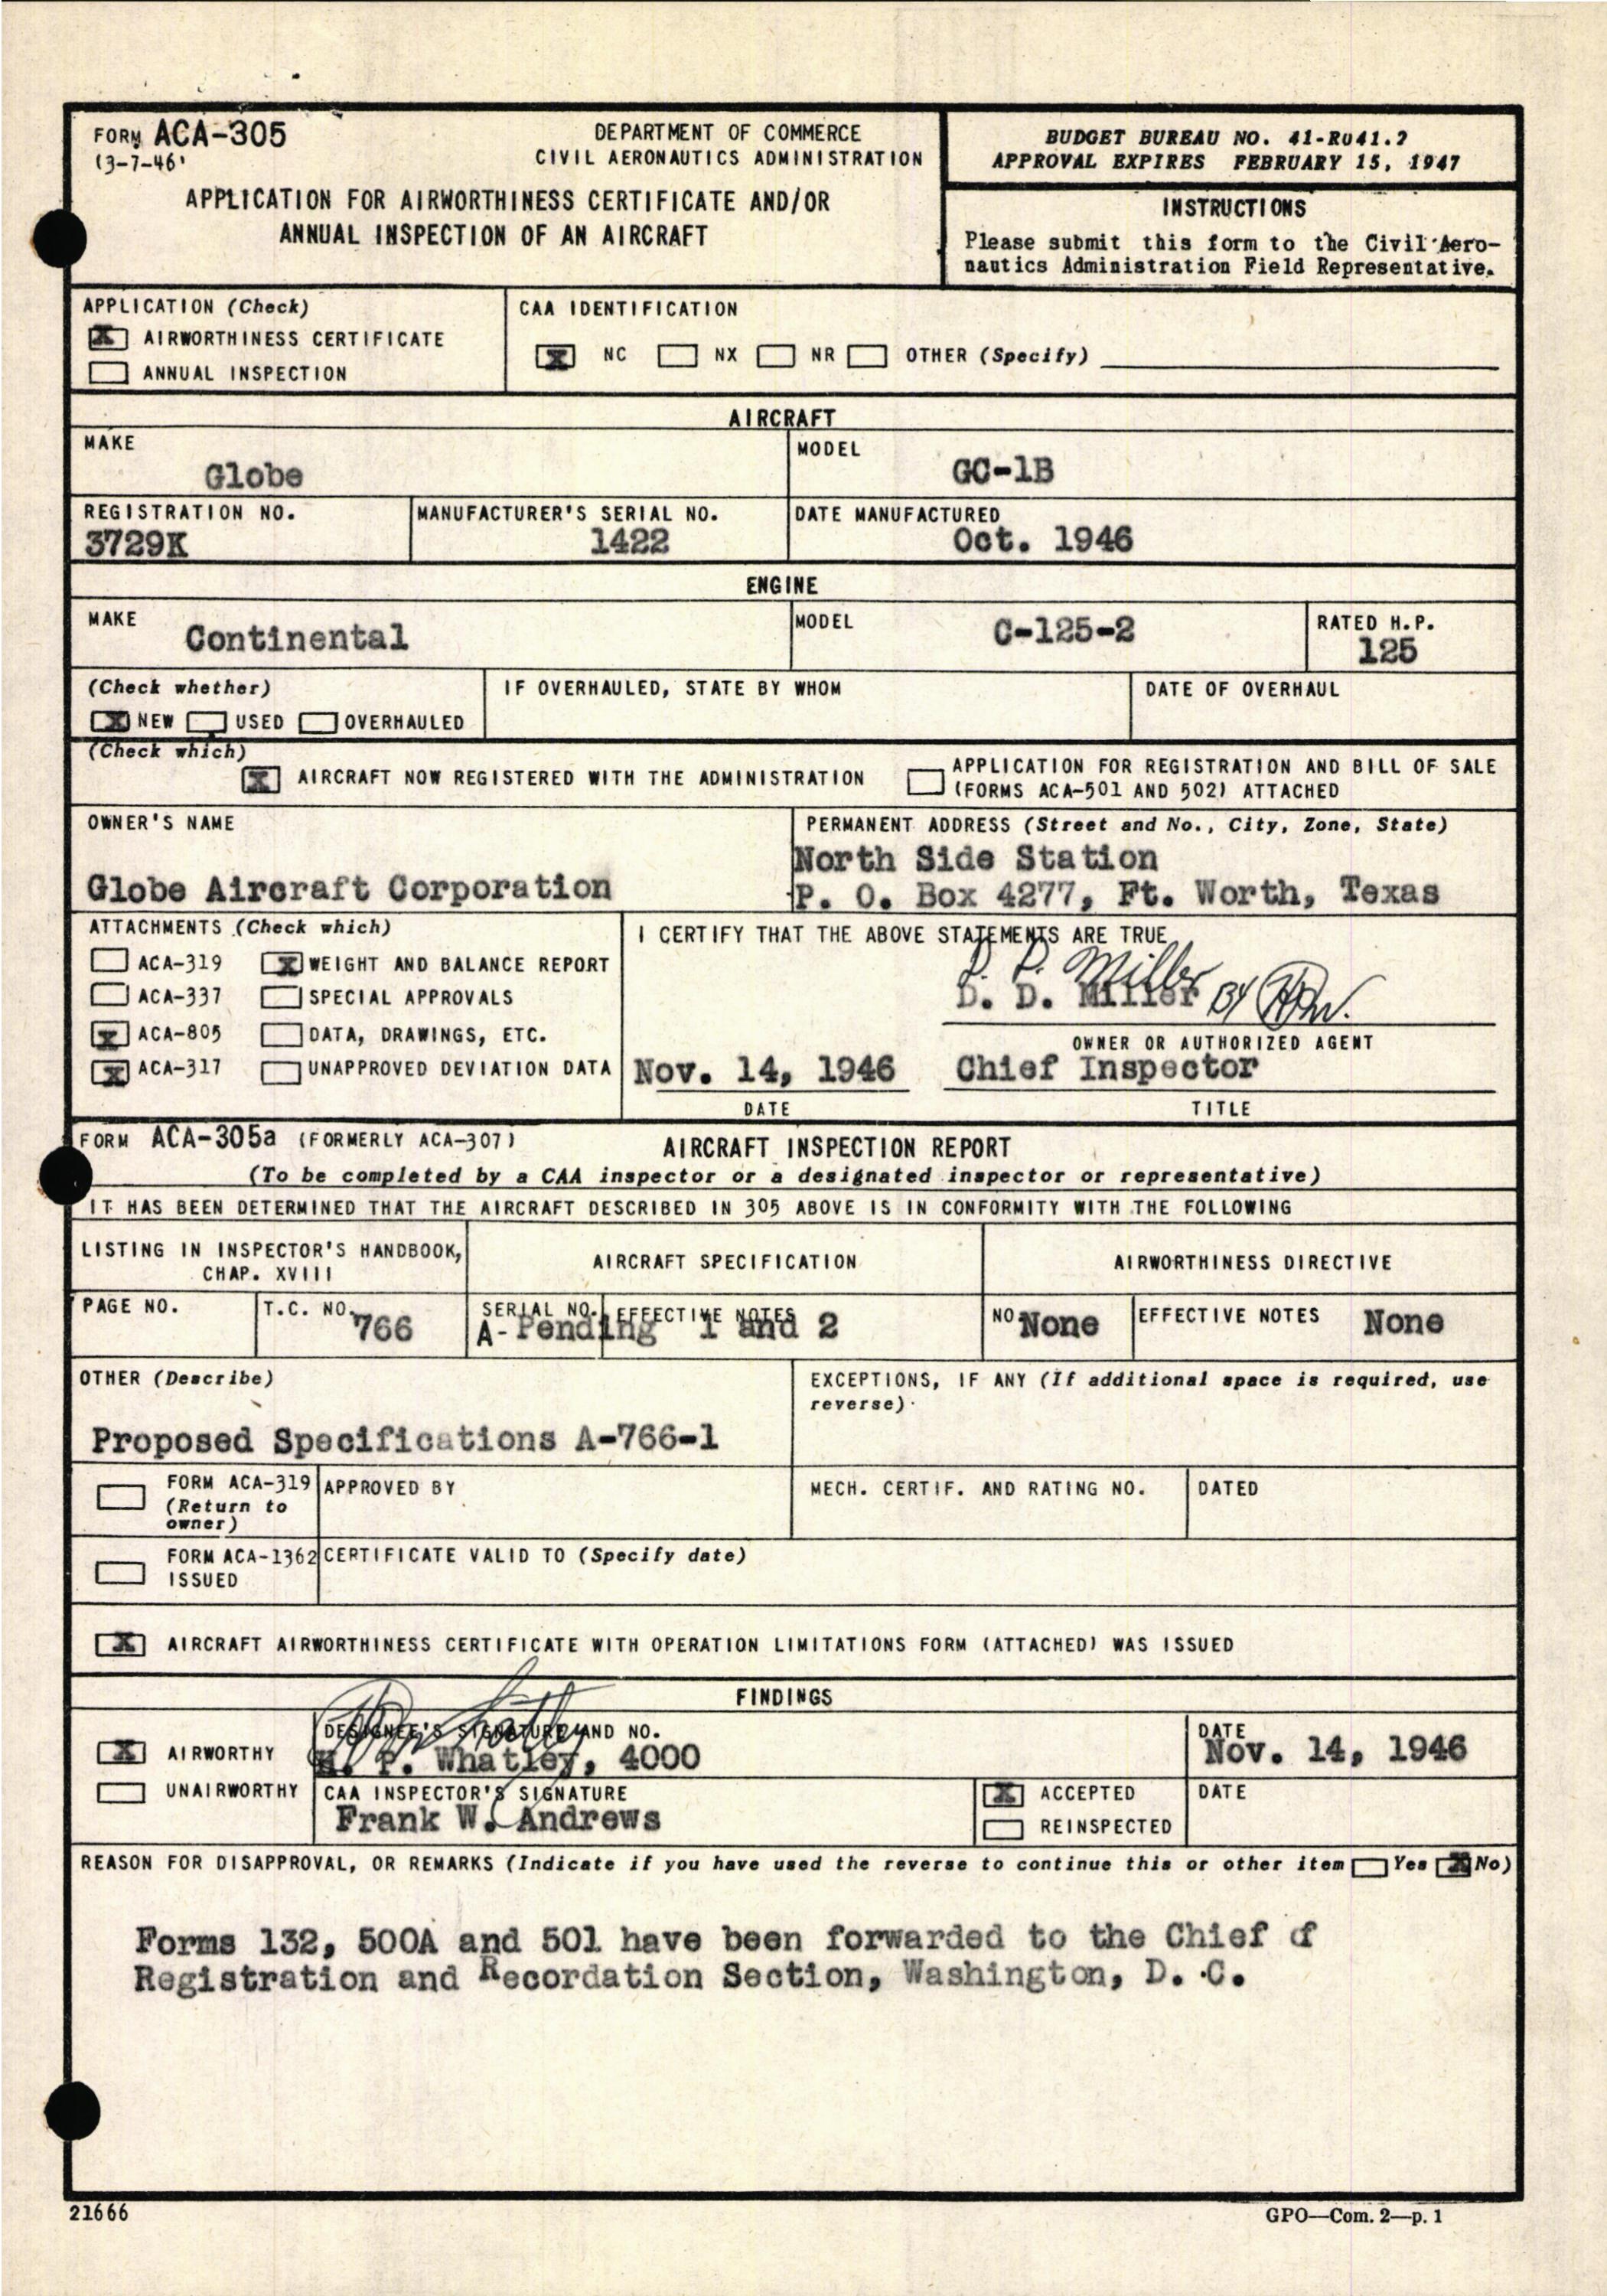 FORM ACA-305
(3-7-46)
DEPARTMENT OF COMMERCE
CIVIL AERONAUTICS ADMINISTRATION
APPLICATION FOR AIRWORTHINESS CERTIFICATE AND/OR
ANNUAL INSPECTION OF AN AIRCRAFT
BUDGET BUREAU NO. 41-R041.2
APPROVAL EXPIRES FEBRUARY 15, 1947
INSTRUCTIONS
Please submit this form to the Civil Aero-
nautics Administration Field Representative.
APPLICATION (Check)
X AIRWORTHINESS CERTIFICATE
ANNUAL INSPECTION
CAA IDENTIFICATION
X NC NX NR OTHER (Specify)
AIRCRAFT
MAKE
Globe
MODEL
GC-1B
REGISTRATION NO.
3729K
MANUFACTURER'S SERIAL NO.
1422
DATE MANUFACTURED
Oct. 1946
ENGINE
MAKE
Continental
MODEL
C-125-2
RATED H.P.
125
(Check whether)
X NEW USED OVERHAULED
IF OVERHAULED, STATE BY WHOM
DATE OF OVERHAUL
(Check which)
X AIRCRAFT NOW REGISTERED WITH THE ADMINISTRATION
APPLICATION FOR REGISTRATION AND BILL OF SALE
(FORMS ACA-501 AND 502) ATTACHED
OWNER'S NAME
Globe Aircraft Corporation
PERMANENT ADDRESS (Street and No., City, Zone, State)
North Side Station
P. O. Box 4277, Ft. Worth, Texas
ATTACHMENTS (Check which)
ACA-319 X WEIGHT AND BALANCE REPORT
ACA-337 SPECIAL APPROVALS
X ACA-805 DATA, DRAWINGS, ETC.
X ACA-317 UNAPPROVED DEVIATION DATA
I CERTIFY THAT THE ABOVE STATEMENTS ARE TRUE
D. D. Miller
D. D. Miller By
OWNER OR AUTHORIZED AGENT
Nov. 14, 1946 Chief Inspector
DATE TITLE
FORM ACA-305a (FORMERLY ACA-307)
AIRCRAFT INSPECTION REPORT
(To be completed by a CAA inspector or a designated inspector or representative)
IT HAS BEEN DETERMINED THAT THE AIRCRAFT DESCRIBED IN 305 ABOVE IS IN CONFORMITY WITH THE FOLLOWING
LISTING IN INSPECTOR'S HANDBOOK,
CHAP. XVIII
AIRCRAFT SPECIFICATION
AIRWORTHINESS DIRECTIVE
PAGE NO.
T.C. NO.
766
SERIAL NO.
A- Pending
EFFECTIVE NOTES
1 and 2
NO None
EFFECTIVE NOTES None
OTHER (Describe)
Proposed Specifications A-766-1
EXCEPTIONS, IF ANY (If additional space is required, use
reverse)
FORM ACA-319
(Return to
owner)
APPROVED BY
MECH. CERTIF. AND RATING NO.
DATED
FORM ACA-1362
ISSUED
CERTIFICATE VALID TO (Specify date)
X AIRCRAFT AIRWORTHINESS CERTIFICATE WITH OPERATION LIMITATIONS FORM (ATTACHED) WAS ISSUED
FINDINGS
X AIRWORTHY
UNAIRWORTHY
DESIGNEE'S SIGNATURE AND NO.
P. Whatley, 4000
DATE
Nov. 14, 1946
CAA INSPECTOR'S SIGNATURE
Frank W. Andrews
X ACCEPTED
REINSPECTED
DATE
REASON FOR DISAPPROVAL, OR REMARKS (Indicate if you have used the reverse to continue this or other item Yes X No)
Forms 132, 500A and 501 have been forwarded to the Chief of
Registration and Recordation Section, Washington, D. C.
21666
GPO—Com. 2—p. 1